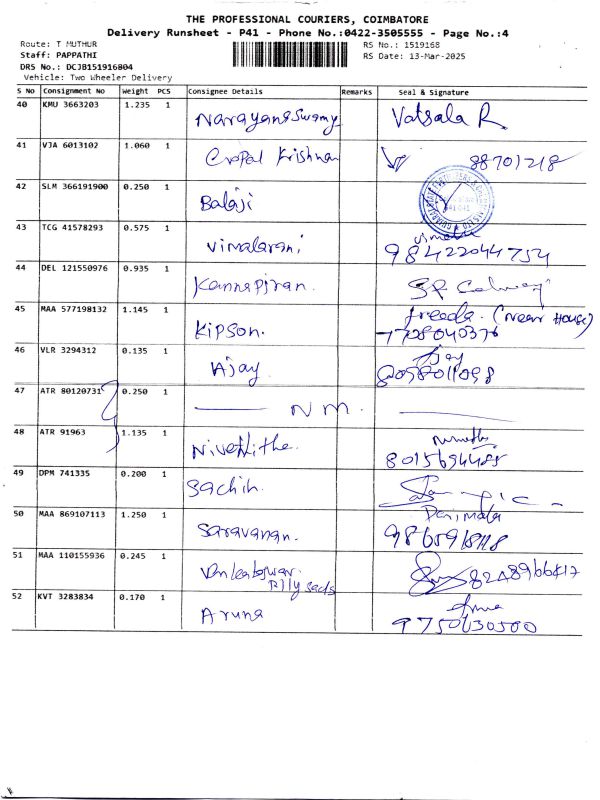 THE PROFESSIONAL COURIERS, COIMBATORE
Delivery Runsheet - P41 - Phone No.:0422-3505555 - Page No.:4
Route: T MUTHUR
RS No.: 1519168
Staff: PAPPATHI
RS Date: 13-Mar-2025
DRS No.: DCJB151916804
Vehicle: Two Wheeler Delivery
S No Consignment No Weight PCS Consignee Details Remarks Seal & Signature
40 KMU 3663203 1.235 1 Narayanaswamy Vatsala R
41 VJA 6013102 1.060 1 Gopal Krishnan
42 SLM 366191900 0.250 1 Balaji
43 TCG 41578293 0.575 1 Vimalarani
98422044754
44 DEL 121550976 0.935 1 Kannapiran.
45 MAA 577198132 1.145 1 Kipson. freeda. (Near House)
7708040376
46 VLR 3294312 0.135 1 Ajay Ajay
8098011098
47 ATR 80120731 0.250 1 N M.
48 ATR 91963 1.135 1 Nivethithe.
8015694485
49 DPM 741335 0.200 1 Sachin.
50 MAA 869107113 1.250 1 Saravanan. Parimala
51 MAA 110155936 0.245 1 Venkateshwar.
52 KVT 3283834 0.170 1 Aruna
9750630500